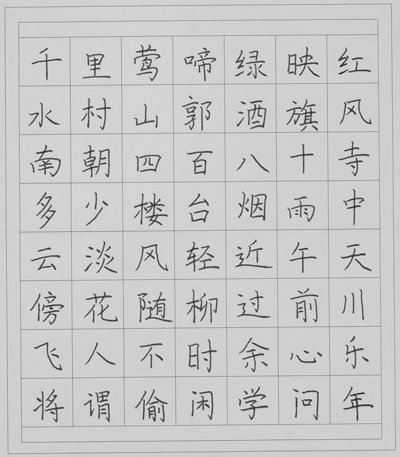 千里莺啼绿映红
水村山郭酒旗风
南朝四百八十寺
多少楼台烟雨中
云淡风轻近午天
傍花随柳过前川
飞人不时余心乐
将谓偷闲学问年